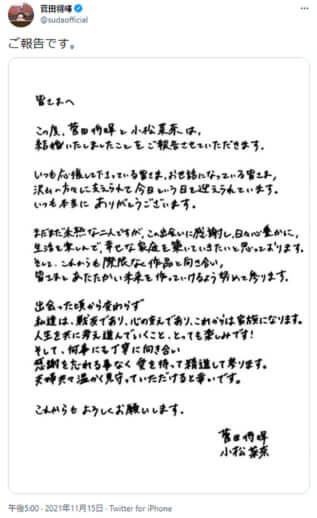 菅田将暉
@sudaofficial
ご報告です。
皆さまへ
この度、菅田将暉と小松菜奈は、
結婚いたしましたことをご報告させていただきます。
いつも応援して下さっている皆さま、お世話になっている皆さま、
沢山の方々に支えられて今日という日を迎えられています。
いつも本当に ありがとうございます。
まだまだ未熟な二人ですが、この出会いに感謝し、日々心豊かに、
生活を楽しんで、幸せな家庭を築いていきたいと思っております。
そして、これからも際限なく作品と向き合い、
皆さまと あたたかい未来を作っていけるよう努めて参ります。
出会った頃から変わらず
私達は、戦友であり、心の支えであり、これからは家族になります。
人生を共に歩み進んでいくこと、とっても楽しみです!
そして、何事にも丁寧に向き合い
感謝を忘れる事なく 愛を持って精進して参ります。
夫婦共々温かく見守っていただけると幸いです。
これからも よろしくお願いします。
菅田将暉
小松菜奈
午後5:00 · 2021年11月15日 · Twitter for iPhone